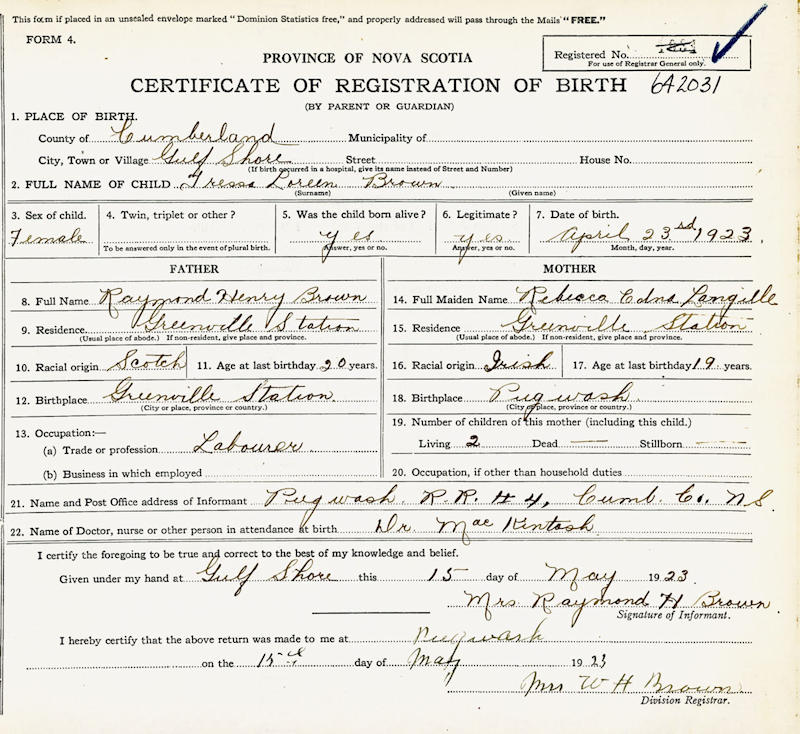 This form if placed in an unsealed envelope marked "Dominion Statistics free," and properly addressed will pass through the Mails "FREE."
FORM 4.
PROVINCE OF NOVA SCOTIA
Registered No.
For use of Registrar General only.
CERTIFICATE OF REGISTRATION OF BIRTH 642031
(BY PARENT OR GUARDIAN)
1. PLACE OF BIRTH.
County of Cumberland Municipality of
City, Town or Village Gulf Shore Street House No.
(If birth occurred in a hospital, give its name instead of Street and Number)
2. FULL NAME OF CHILD Tressa Loreen Brown
(Surname) (Given name)
3. Sex of child. 4. Twin, triplet or other ? 5. Was the child born alive? 6. Legitimate ? 7. Date of birth.
Female yes yes April 23rd 1923.
To be answered only in the event of plural birth. Answer, yes or no. Answer, yes or no. Month, day, year.
FATHER MOTHER
8. Full Name Raymond Henry Brown 14. Full Maiden Name Rebecca Edna Langille
9. Residence Greenville Station 15. Residence Greenville Station
(Usual place of abode.) If non-resident, give place and province. (Usual place of abode.) If non-resident, give place and province.
10. Racial origin Scotch 11. Age at last birthday 20 years. 16. Racial origin Irish 17. Age at last birthday 19 years.
12. Birthplace Greenville Station 18. Birthplace Pugwash
(City or place, province or country.) (City or place, province or country.)
19. Number of children of this mother (including this child.)
13. Occupation:—
(a) Trade or profession Labourer Living 2 Dead — Stillborn —
(b) Business in which employed 20. Occupation, if other than household duties
21. Name and Post Office address of Informant Pugwash R.R. # 4, Cumb. Co. N S.
22. Name of Doctor, nurse or other person in attendance at birth Dr. MacKintosh
I certify the foregoing to be true and correct to the best of my knowledge and belief.
Given under my hand at Gulf Shore this 15 day of May 1923.
Mrs Raymond H Brown
Signature of Informant.
I hereby certify that the above return was made to me at Pugwash
on the 15th day of May 1923
Mrs W H Brown
Division Registrar.